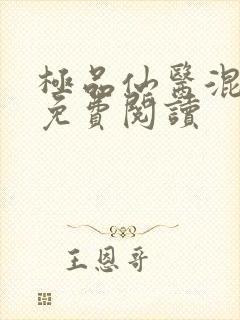 極品仙醫混
免費閱讀
王恩哥